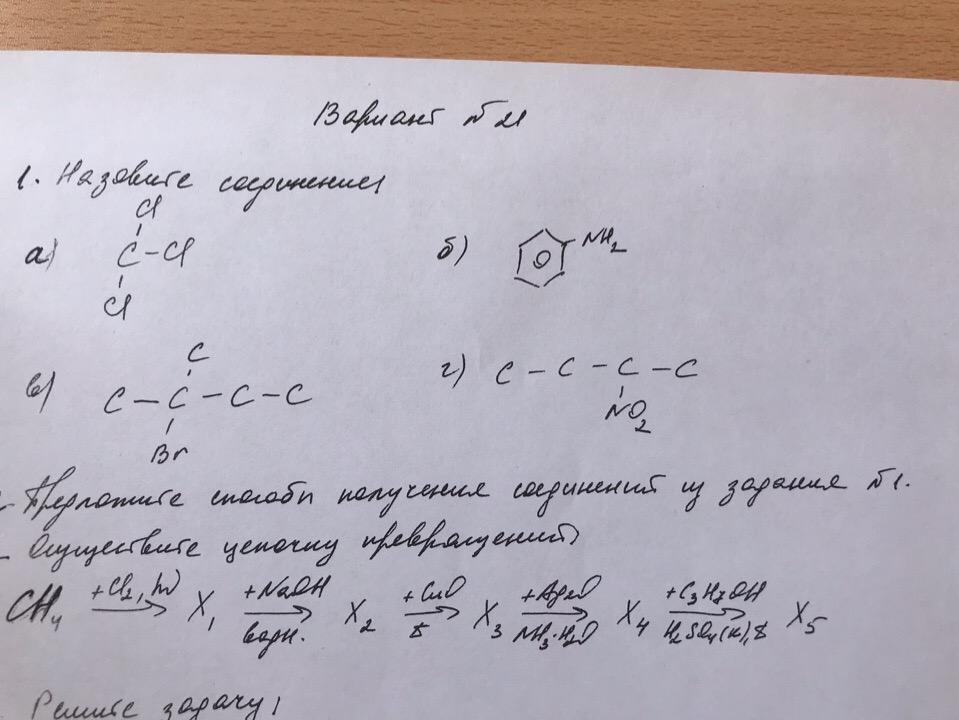 Вариант №21
1. Назовите соединения
а) Cl
C – Cl
Cl
б) NH2
в) C
C – C – C – C
Br
г) C – C – C – C
NO2
Предложите способы получения соединений из задания №1.
Осуществите цепочку превращений
CH4 +Cl2, hν → X1 +NaOH водн. → X2 +CuO t → X3 +Ag2O NH3·H2O → X4 +C3H7OH H2SO4(к), t → X5
Решите задачу: